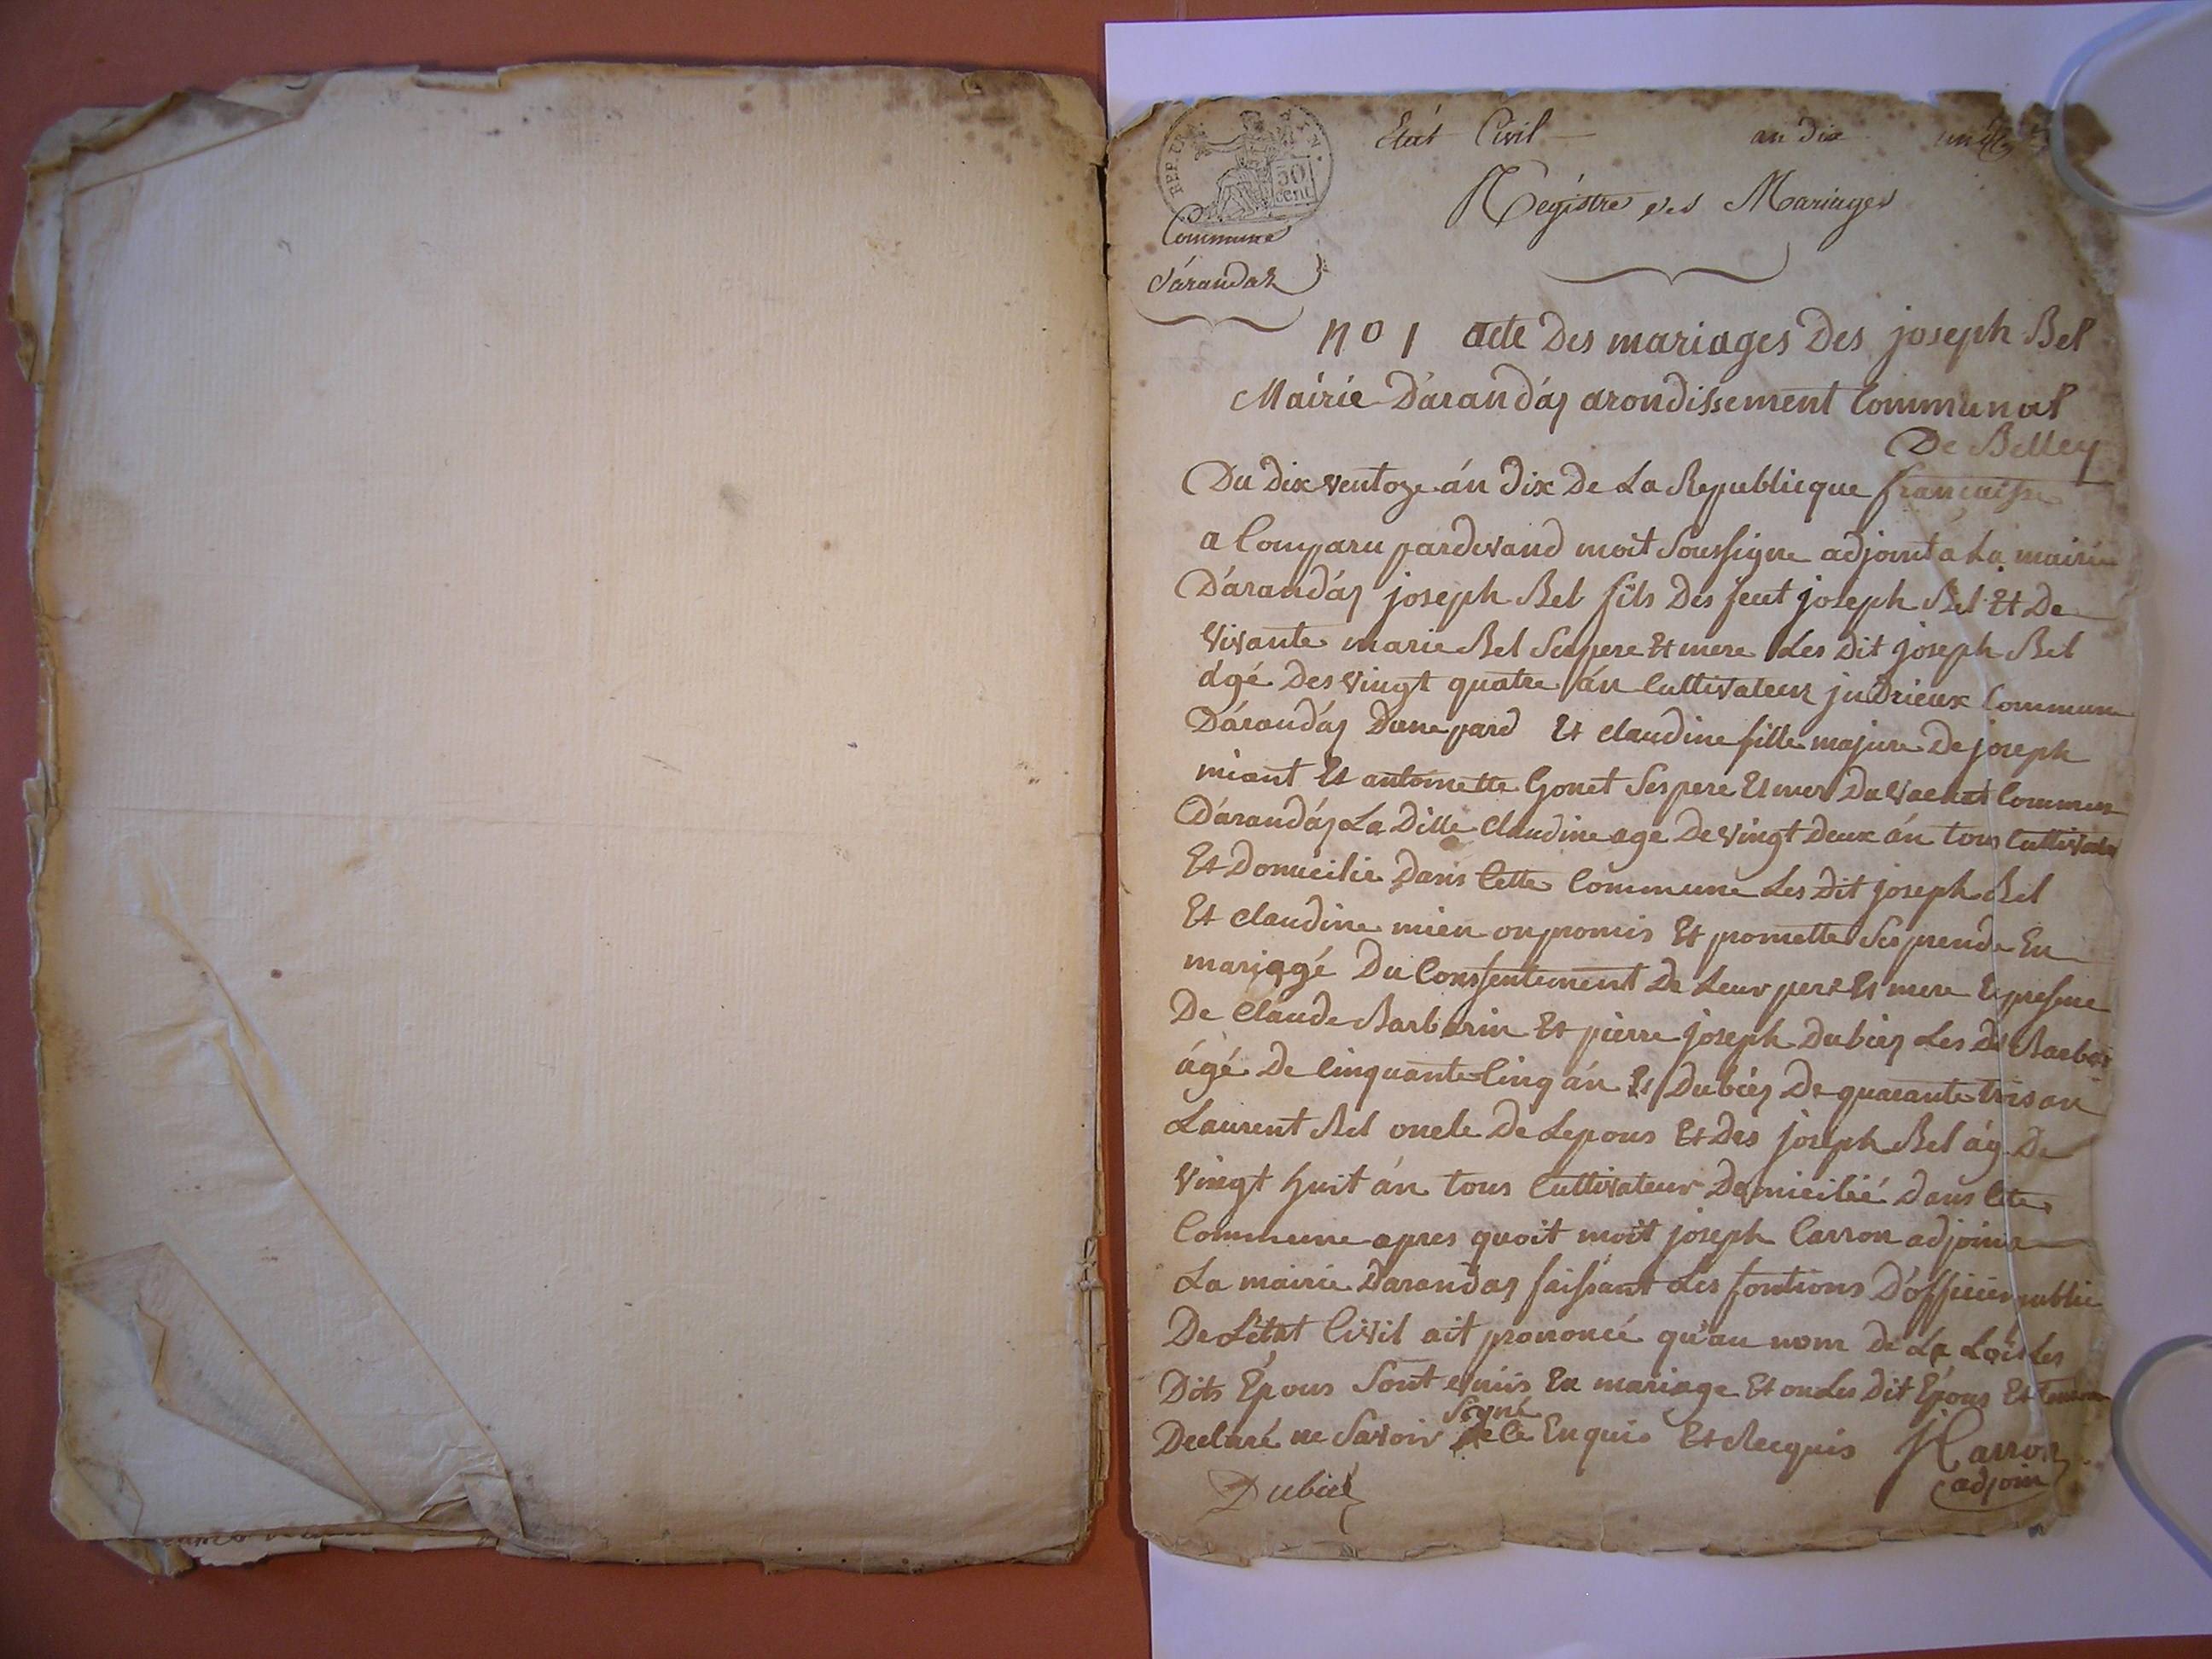 REP. FRA
50
cent
Etat Civil an dix
Commune
d'arandas
Régistre des Mariages
No 1 acte Des mariages Des joseph Bel
Mairie D'arandas arondissement Communal
De Belley
Du Dix ventoze án Dix De La Republicque francaisse
a Comparu pardevand moit Soussigne adjoint a La mairie
D'arandás joseph Bel fils Des feut joseph Bel Et De
vivante marie Bel Ses pere Et mere Les Dit joseph Bel
agé Des vingt quatre án Cultivateur judrieux Commune
D'arandás Dune pard Et claudine fille majure De joseph
miant Et antoinette Gonet Ses pere Et mer Du vachat Commun
D'arandás La Ditte Claudine age De vingt Deux án tous Cultivat
Et Domicilie Dans Cette Commune Les Dit joseph Bel
Et claudine mien on promis Et promette Se prende En
mariagé Du Conssentement De Leur pere Et mere E presene
De Claude Barbarin Et pierre joseph Dubiez Les Dit Barba
ágé De Cinquante Cinq án Et Dubiez De quarante trois an
Laurent Bel oncle De Lepous Et Des joseph Bel ág De
vingt huit án tous Cultivateur Domicilié dans Cete
Commune apres quoit moit joseph Carron adjoin a
La mairie Darandas faissant Les fontions D'officier public
De L'état Civil ait prononcé qu'au nom De La Loi Les
Dits Épous Sont unis En mariage Et on Les Dit Épous Et
signé
Declaré ne Savoir de Ce Enquis Et Recquis J Carron
adjoin
Dubiez